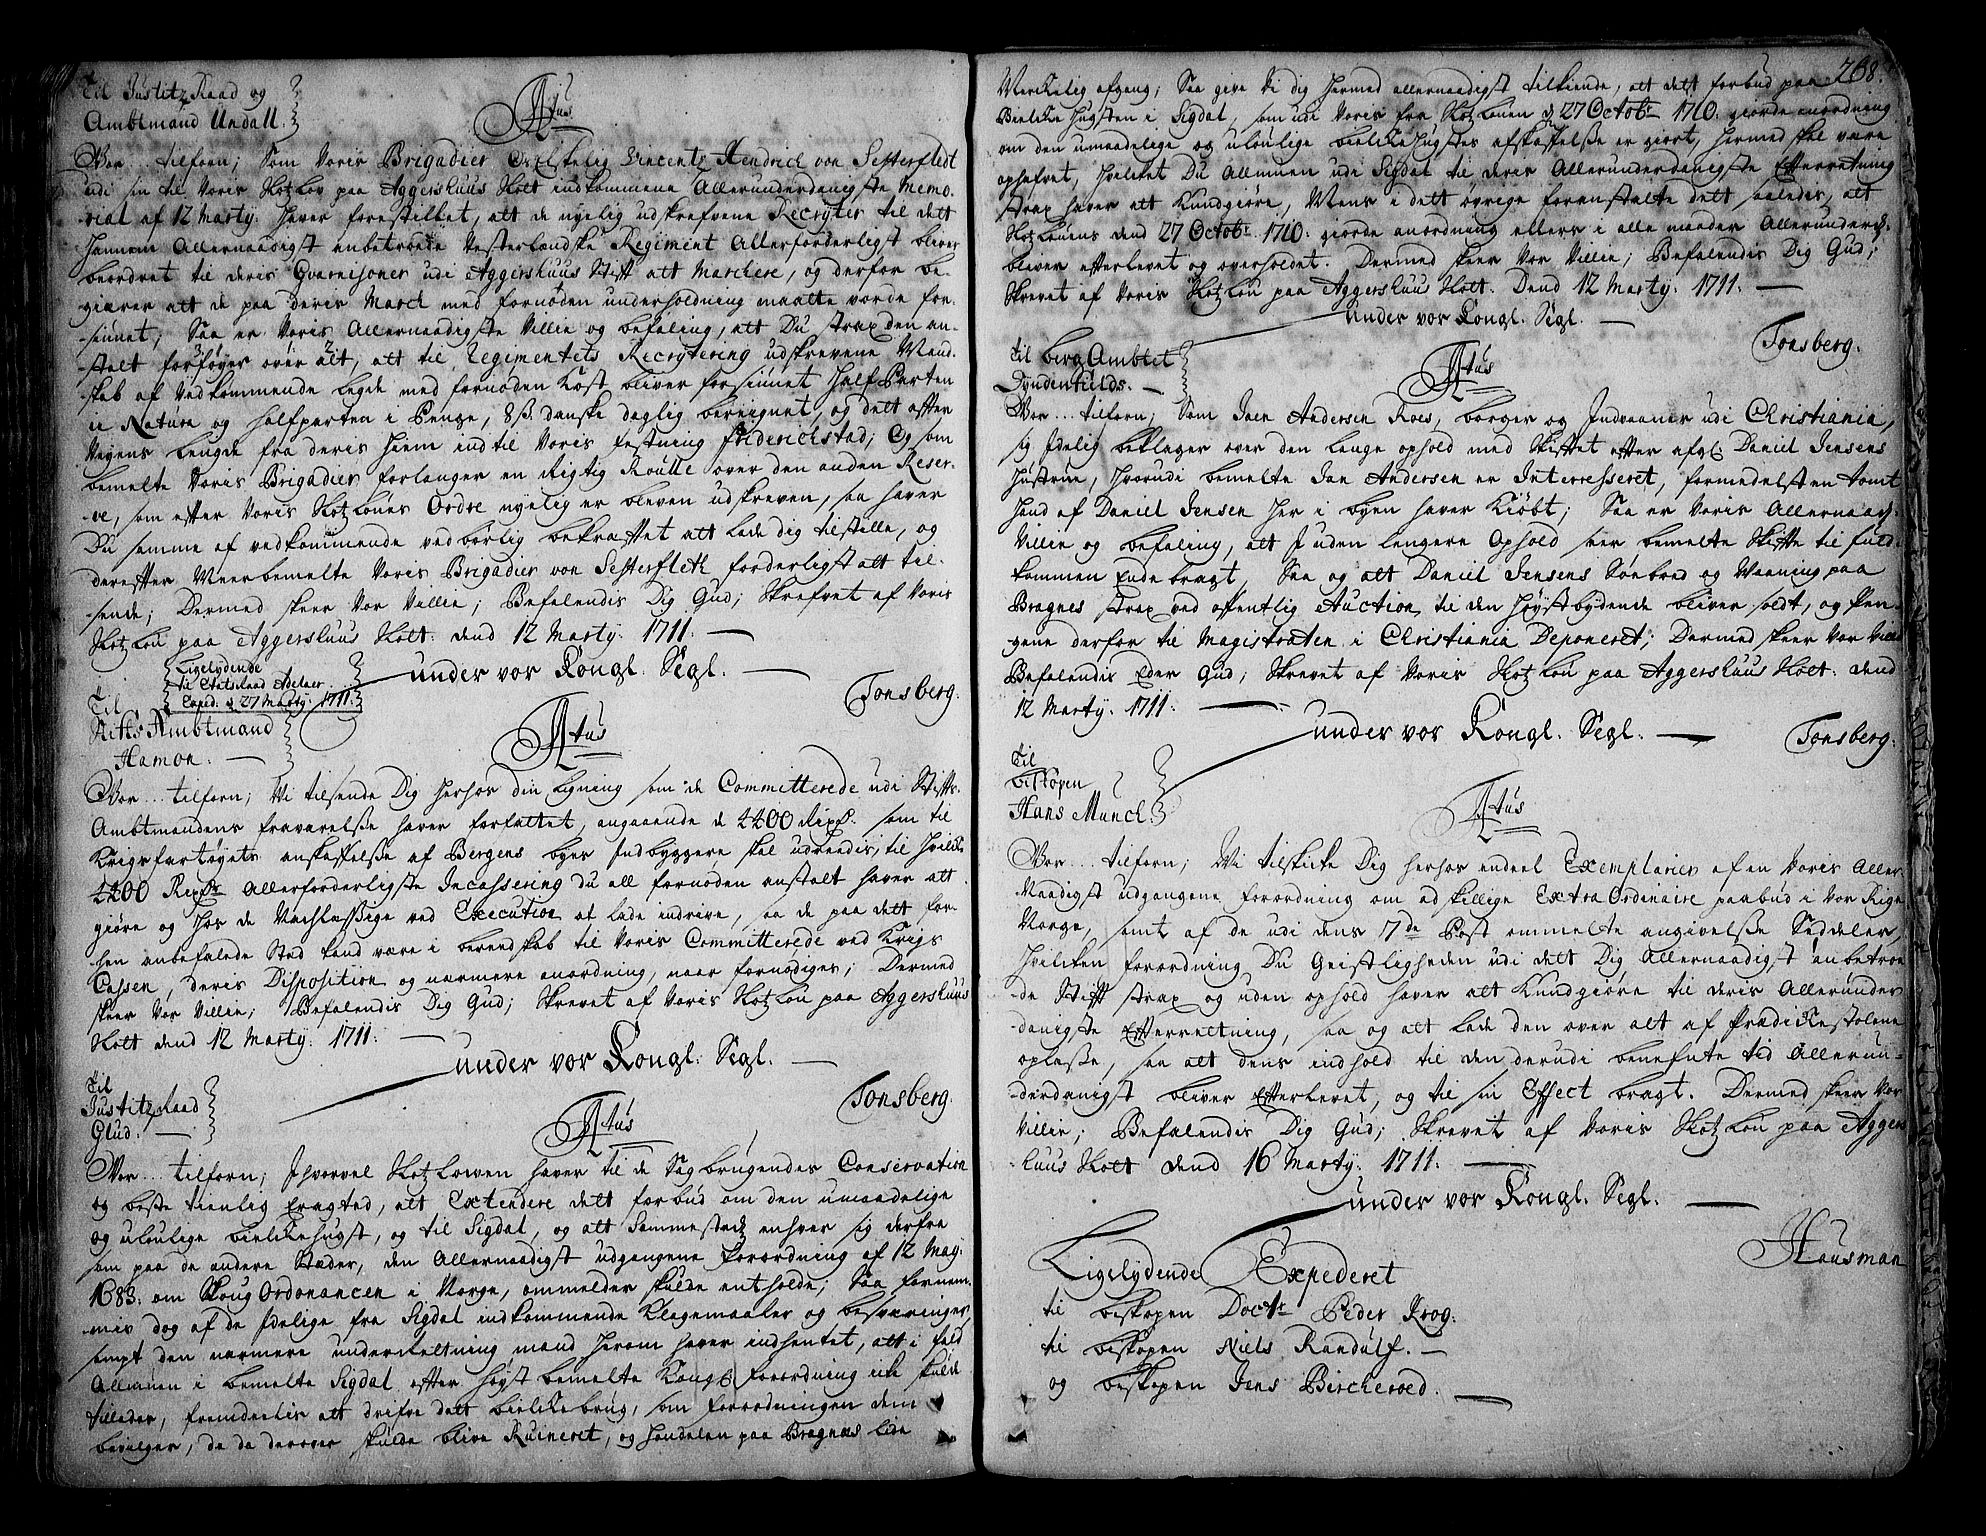 Til Justitz Raad og
Ambtmand Undall.
Atus
Vor... tilforn; Som Voris Brigadier Edle Velig Vincents Hendrich von Sesterfledt
udi sin til Voris Slotzlov paa Aggershuus Slott indkommene Allerunderdanigste Memo-
rial af 12 Marty: haver forestillet, att de nyelig udskrefvene Recryter til dett
hannem Allernaadigst anbetroede Vesterlendske Regiment Allerforderligst bliver
beordret til deris Gvarnisoner udi Aggershuus Stift att Marchere, og derfor be-
giærer att de paa deris March med fornøden underholdning maatte vorde for-
siunet; Saa er Voris Allernaadigste Villie og befaling, att Du strax den an-
stalt forføyer over alt, att til Regimentets Recrytering udskrevene Mand-
skab af vedkommende legde med fornøden Kost bliver forsiunet half Parten
in Natura og halfparten i Penge, 8 ß danske daglig beregnet, og dett efter
Veyens lengde fra deris hiem indtil Voris festning friderichstad; Og som
bemelte Voris Brigadier forlanger en Rigtig Roulle over den anden Reser-
ve, som efter Voris Slotzloves Ordre nyelig er bleven udskreven, saa haver
Du samme af vedkommende vedbørlig bekræftet att lade dig tilstille, og
derefter Meerbemelte Voris Brigadier von Sesterfleth forderligst att til-
sende; Dermed skeer Vor Villie; Befalendis Dig Gud; Skrefvet af Voris
Slotzlov paa Aggershuus Slott. dend 12 Marty. 1711.
under vor Kongl. Segl.
Tonsberg.
Ligelydende
til Etatsraad Adelaer
Exped. d. 27 Marty. 1711.
Til
Stifts Ambtmand
Hamon.
Atus
Vor... tilforn; Vi tilsende Dig herhos din ligning som de Committerede udi Stifts
Ambtmandens fraværelse haver forfattet, angaaende de 4400 Rixd. som til
Krigsfartøyets anskaffelse af Bergens byes Indbyggere skal udreedis, til hvilke
4400 Rixdr Allerforderligste Incassering du all fornøden anstalt haver att
giøre og hos de Nachlæssige ved Execution at lade indrive, saa de paa dett for-
hen anbefalede Sted kand være i beredskab til Voris Committerede ved Krigs
Cassen, deris Disposition og nærmere anordning, naar fornødiges; Dermed
skeer Vor Villie; Befalendis Dig Gud; Skrevet af Voris Slotzlov paa Aggershuus
Slott dend 12 Marty. 1711.
under vor Kongl. Segl.
Tonsberg.
Til
Justitz Raad
Glud.
Atus
Vor... tilforn; Ihvorvel Slotzlowen haver til de Sagbrugendes Conservation
og beste tienlig eragted, att Extendere dett forbud om den umaadelige
og ulovlige bielkehugst, og til Sigdal, og att Sammestedz enhver sig derfra
som paa de andere Stæder, den Allernaadigst udgangene forordning af 12 May:
1683. om Skoug Ordonancen i Norge, ommelder skulde entholde; Saa fornem-
mis dog af de Idelige fra Sigdal indkommende Klagemaaler og besværinger,
sampt den nærmere underrettning mand herom haver indhentet, att i fald
Allmuen i bemelte Sigdal efter høyst bemelte Kongl. forordning icke skulde
tillades, fremdeelis att drifve dett bielkebrug, som forordningen dem
bevilger, da de derover skulde blive Ruineret, og handelen paa Bragnæs lide
268.
Merckelig afgang; Saa give Vi dig hermed allernaadigst tilkiende, att dett forbud paa
Bielke hugsten i Sigdal, som udi Voris fra Slotzloven d. 27 Octobr 1710. giorde anordning
om den umaadelige og ulovlige bielkehugstes afskaffelse er giort, hermed skal være
ophefvet, hvilket Du Allmuen udi Sigdal til deris Allerunderdanigste Efterretning
strax haver att Kundgiøre, Mens i dett øvrige foranstalte dett saaledes, att
Slotzlovens dend 27 Octobr. 1710. giorde anordning ellers i alle maader Allerunderd:
bliver efterlevet og overholdet. Dermed skeer Vor Villie; Befalendis Dig Gud;
Skrevet af Voris Slotzlov paa Aggershuus Slott. Dend 12 Marty. 1711.
under vor Kongl. Segl.
Tonsberg.
Til berg Ambtet
Syndenfields.
Atus
Vor... tilforn; Som Joen Andersen Roes, borger og Indvaaner udi Christiania,
sig Idelig beklager over den lange ophold med Skiftet efter afgl. Daniel Jensens
hustrue, hvorudi bemelte Jon Andersen er Interresseret, formedelst en tomt
hand af Daniel Jensen her i byen haver Kiøbt; Saa er Voris Allernaads.
Villie og befaling, att I uden lengere Ophold seer bemelte Skifte til fuld-
kommen Ende bragt, Saa og att Daniel Jensens Sønboed og Waaning paa
Bragnes strax ved offentlig Auction til den høystbydende bliver soldt, og Pen-
gene derfor til Magistraten i Christiania Deponeret; Dermed skeer Vor Villie
Befalendis Eder Gud; Skrevet af Voris Slotzlov paa Aggershuus Slott. dend
12 Marty. 1711.
under vor Kongl. Segl.
Tonsberg.
Til
biskopen
Hans Munch.
Atus
Vor... tilforn; Vi tilskicke Dig herhos endeel Exemplarier af en Voris Aller-
Naadigst udgangene forordning om adskillige Extra Ordinaire paabud i Vor Rige
Norge, samt af de udi dens 7de Post ommelte angivelse Seddeler,
hvilken forordning Du Geistligheden udi dett Dig Allernaadigst anbetroe-
de Stift strax og uden ophold haver att Kundgiøre til deris Allerunder
danigste Efterrettning, saa og att lade den over alt af Prædickestolene
oplæse, saa att dens indhold til den derudi benefnte tid Allerun-
derdanigst bliver Efterlevet, og til sin Effect bragt. Dermed skeer Vor
Villie; Befalendis Dig Gud; Skrevet af Voris Slotzlov paa Aggers
huus Slott dend 16 Marty. 1711.
under vor Kongl. Segl.
Hausman
Ligelydende Expederet
til biskopen Doctr Peder Krog.
til biskopen Niels Randulf.
og biskopen Jens Bircheroed.